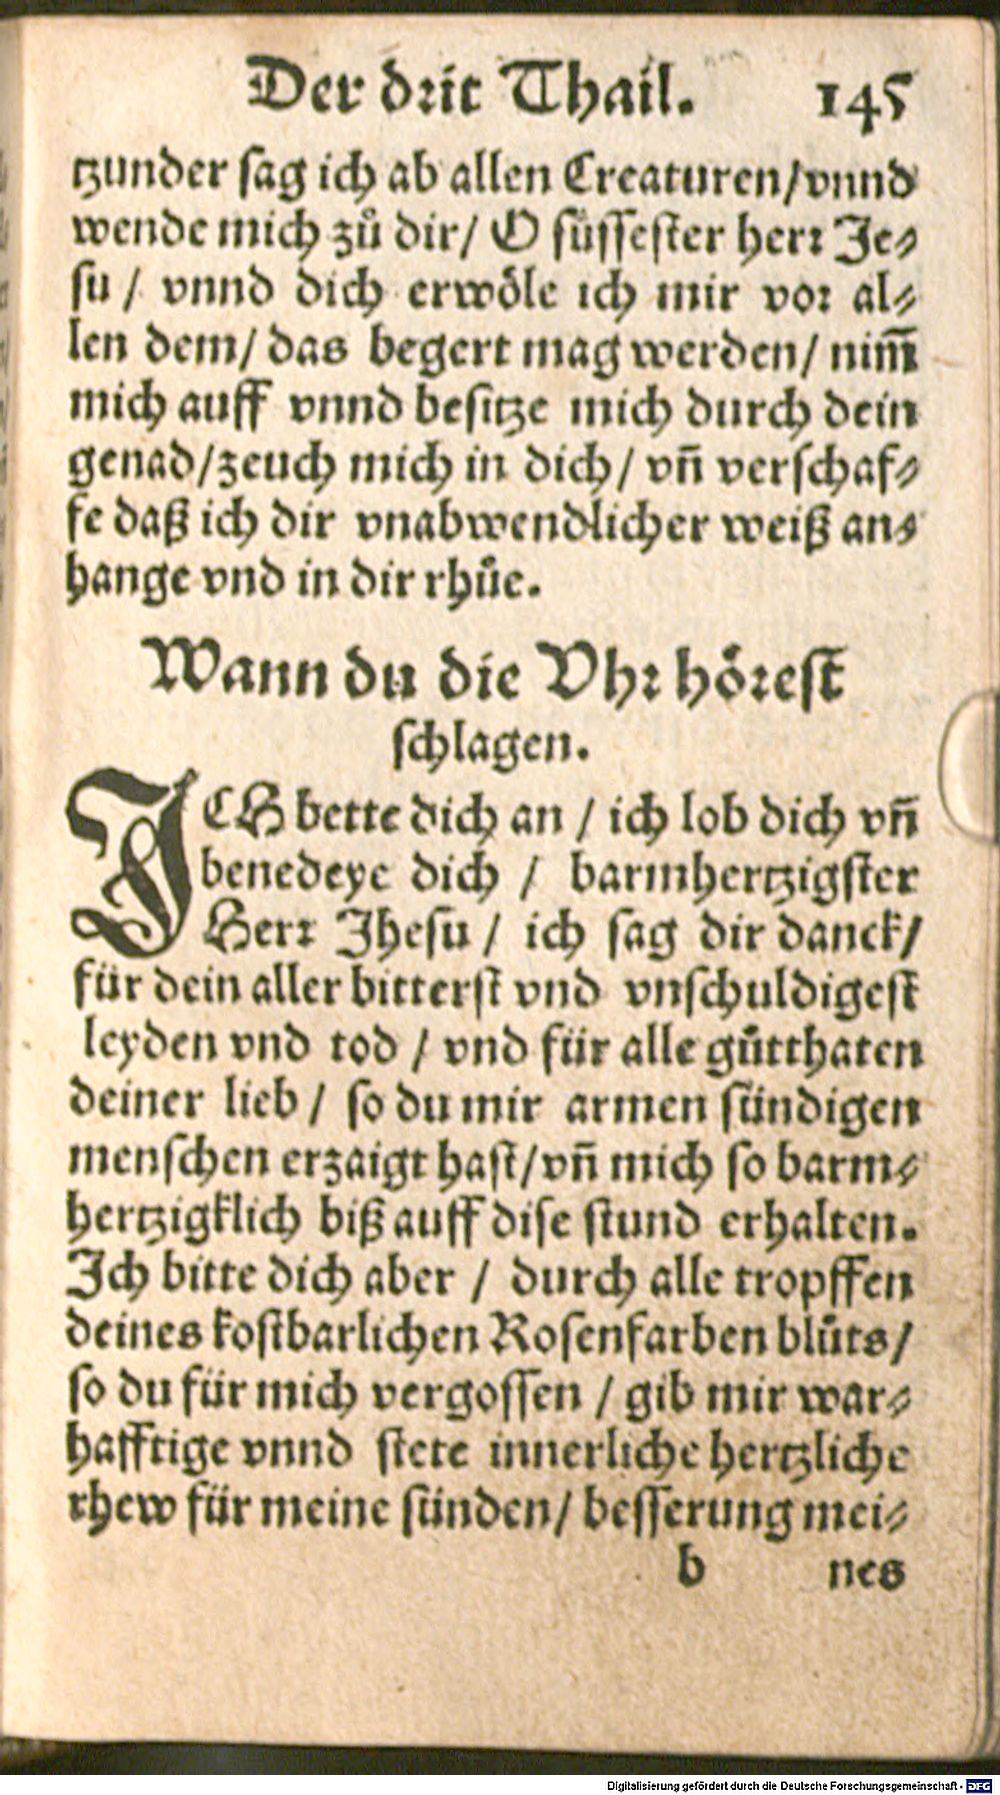 Der drit Thail. 145
tzunder sag ich ab allen Creaturen/vnnd
wende mich zů dir/ O süssester herr Je⸗
su / vnnd dich erwöle ich mir vor al⸗
len dem/ das begert mag werden/ nim̄
mich auff vnnd besitze mich durch dein
genad/zeuch mich in dich/ vn̄ verschaf⸗
fe daß ich dir vnabwendlicher weiß an⸗
hange vnd in dir rhůe.
Wann du die Vhr hörest
schlagen.
ICH bette dich an / ich lob dich vn̄
benedeye dich / barmhertzigster
Herr Jhesu / ich sag dir danck/
für dein aller bitterst vnd vnschuldigest
leyden vnd tod / vnd für alle gůtthaten
deiner lieb / so du mir armen sündigen
menschen erzaigt hast/vn̄ mich so barm⸗
hertzigklich biß auff dise stund erhalten.
Ich bitte dich aber / durch alle tropffen
deines kostbarlichen Rosenfarben blůts/
so du für mich vergossen / gib mir war⸗
hafftige vnnd stete innerliche hertzliche
rhew für meine sünden/ besserung mei⸗
b nes
Digitalisierung gefördert durch die Deutsche Forschungsgemeinschaft - DFG